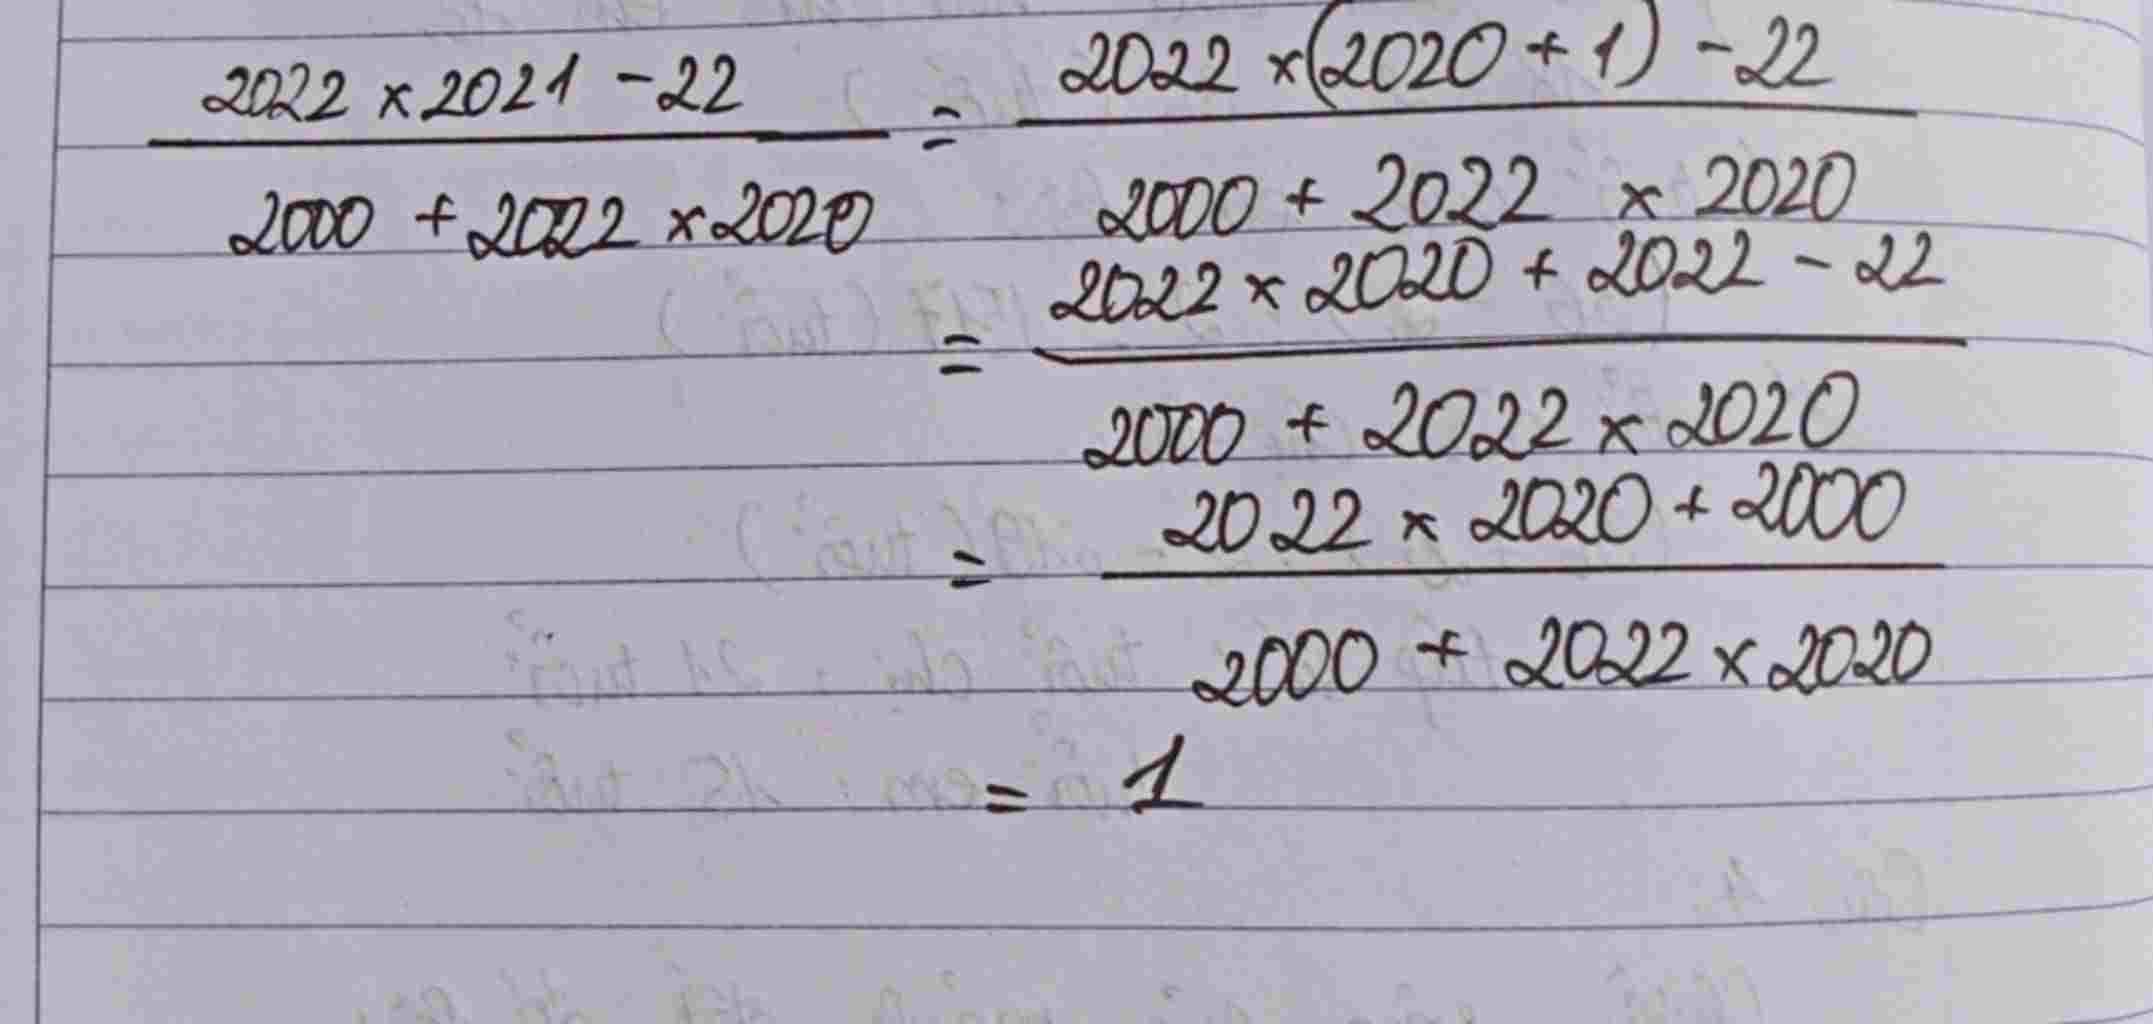 2022 × 2021 - 22 / 2000 + 2022 × 2020 = 2022 × (2020 + 1) - 22 / 2000 + 2022 × 2020
= 2022 × 2020 + 2022 - 22 / 2000 + 2022 × 2020
= 2022 × 2020 + 2000 / 2000 + 2022 × 2020
= 1